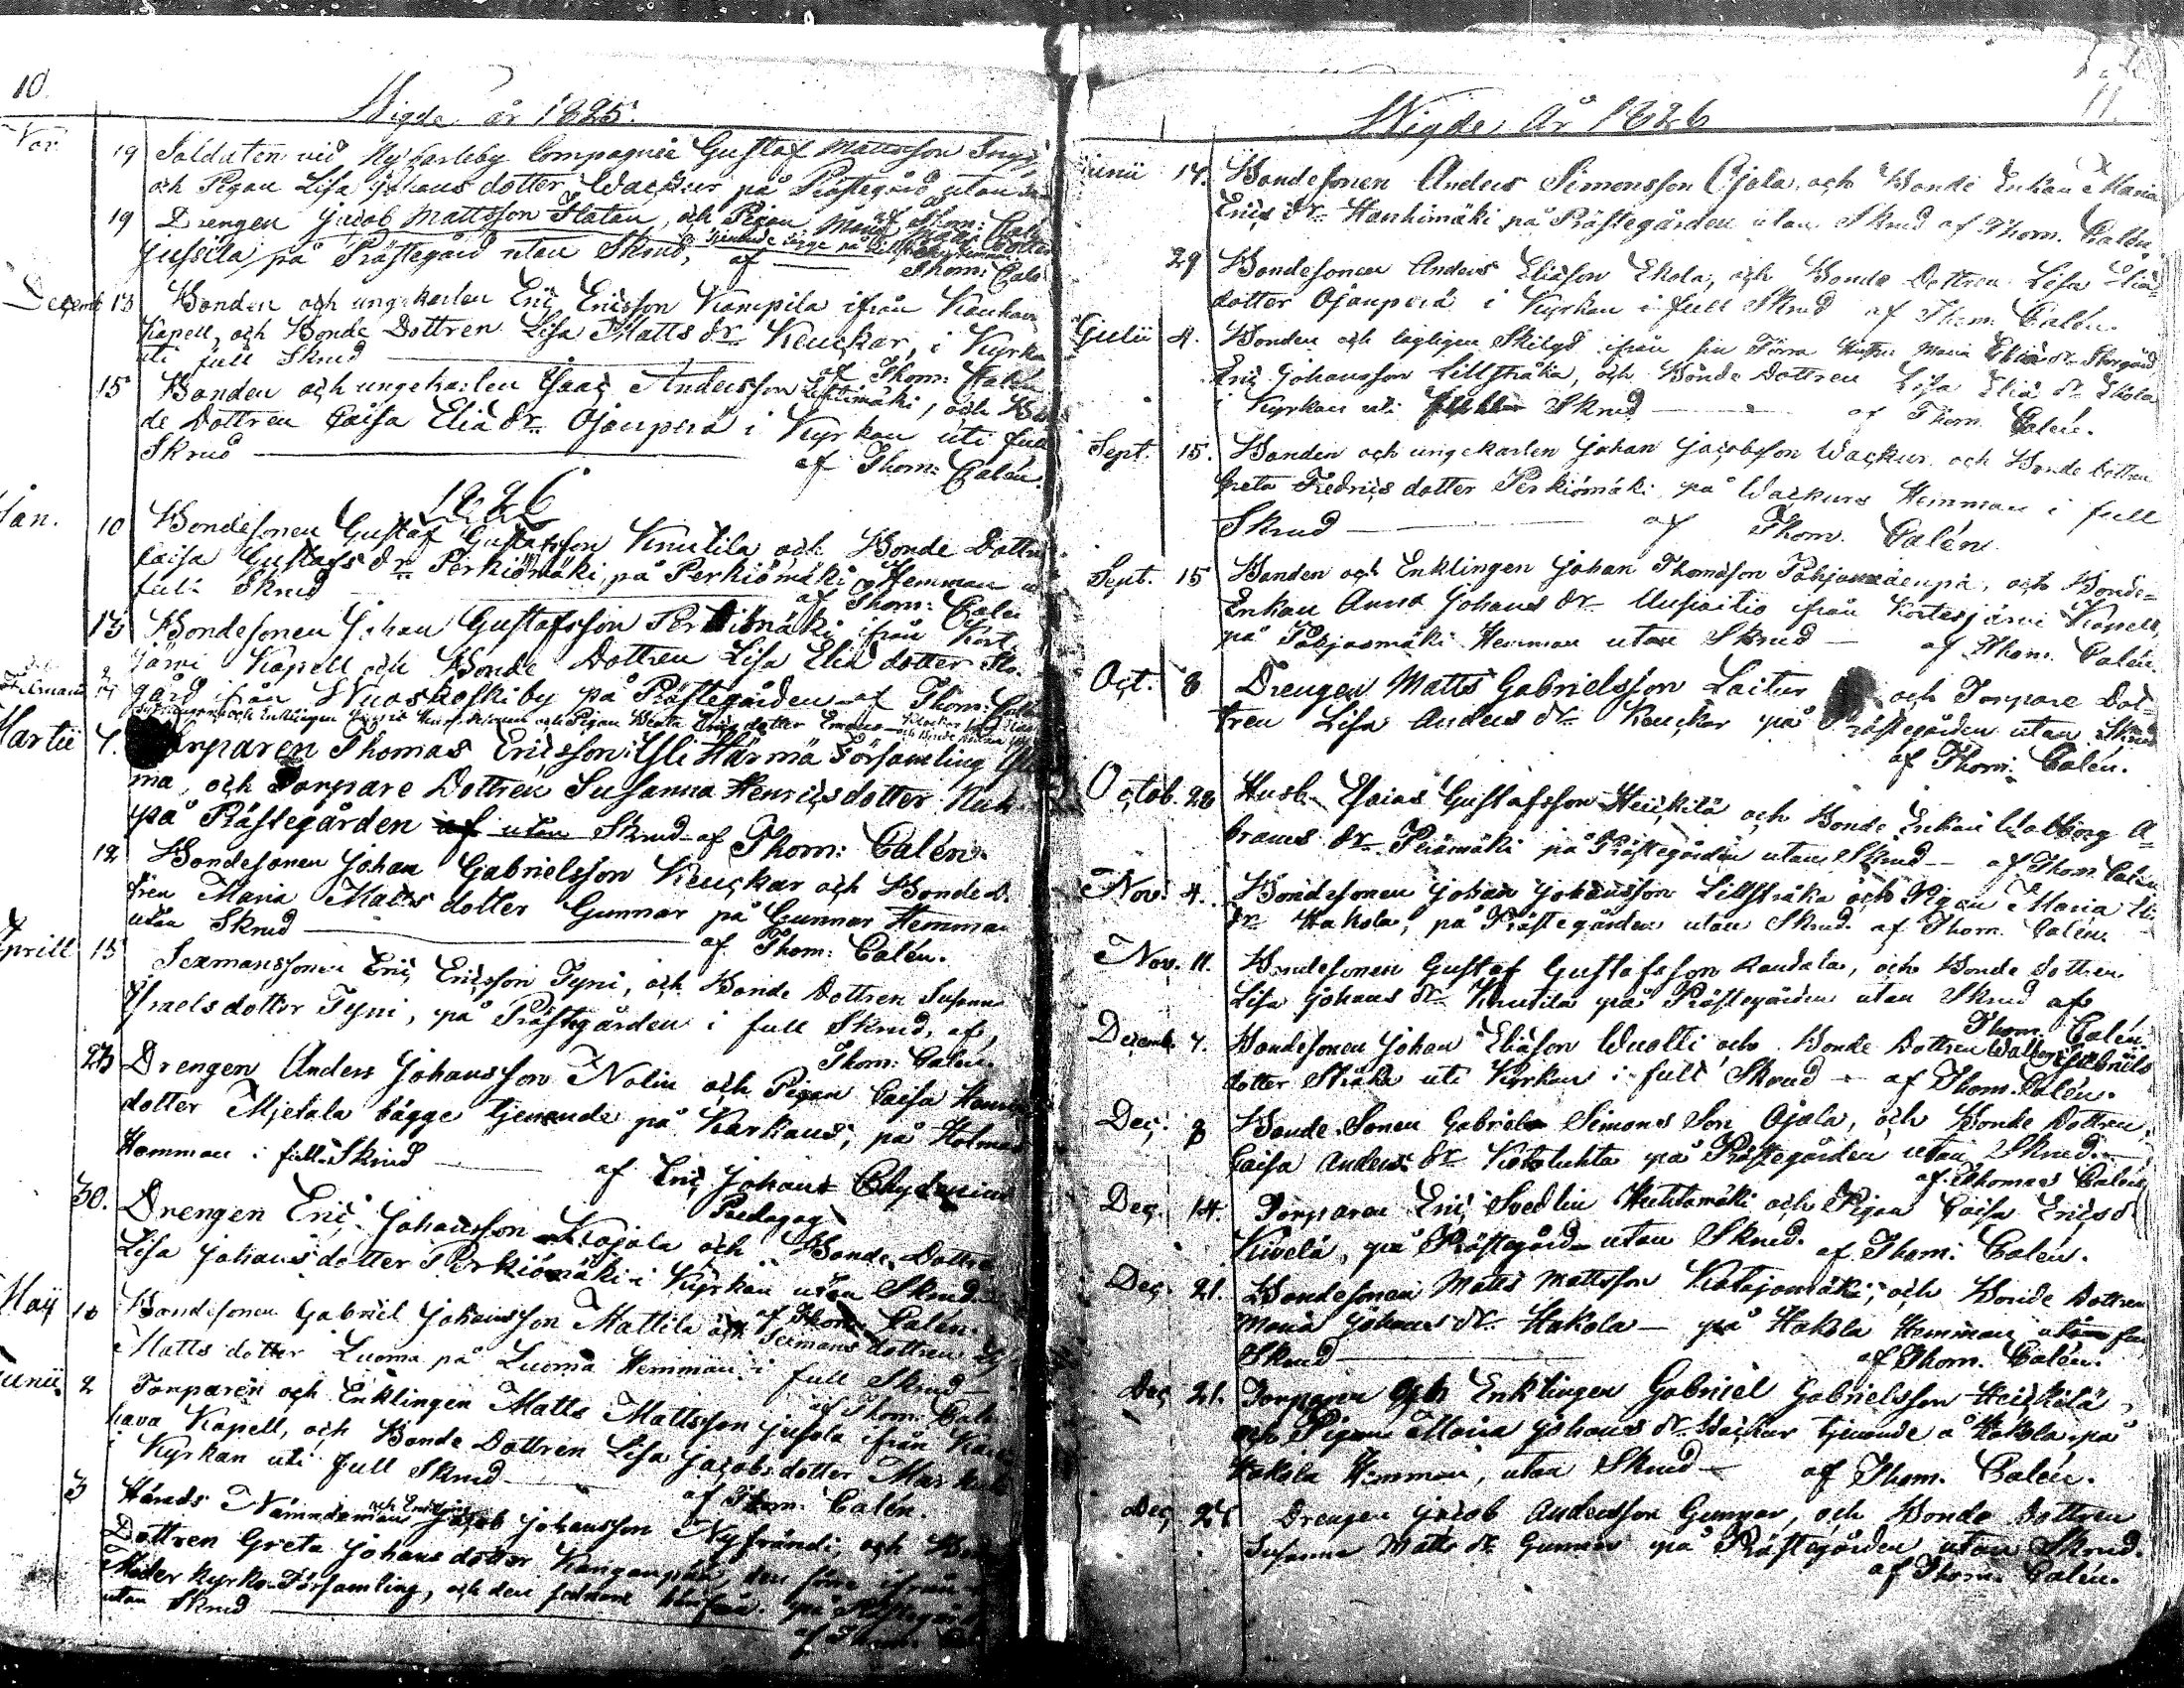 10.
Wigde år 1825.
Nov. 19 Soldaten vid Ny Carleby Compagnie Gustaf Mattsson
och Pigan Lisa Johans dotter Wackur på Prästegård utan
af Thom: Calén
19 Drengen Jacob Mattsson Slatan, och Pigan Maria Matts dotter
Jussila på Prästegård utan Skrud, af Thom: Calén
Decemb 13 Bonden och ungekarlen Eric Ericsson Kampila ifrån Kauhava
Kapell, och Bonde Dottren Lisa Matts dr Keuckar, i Kyrkan
uti full Skrud af Thom: Calén
15 Bonden och ungekarlen Isaac Andersson Lehtimäki, och Bon
de Dottren Caisa Elia dr Ojanperä i Kyrkan uti full
Skrud af Thom: Calén.
1826
Jan. 10 Bondesonen Gustaf Gustafsson Knutila och Bonde Dottren
Caisa Gustafs dr Perkiömäki, på Perkiömäki Hemman
full Skrud af Thom: Calén
13 Bondesonen Johan Gustafsson Perkiömäki ifrån Kort
järvi Kapell och Bonde Dottren Lisa Elia dotter Sto
gård ifrån Wuoskoski by på Prästegården af Thom: Calén
och Enklingen och Pigan Beata Erics dotter
Martii 7. Torparen Thomas Ericsson Yli Härmä Församling
ma, och Torpare Dottren Susanna Henrics dotter
på Prästegården af utan Skrud af Thom: Calén.
12 Bondesonen Johan Gabrielsson Keuckar och Bonde D
tren Maria Matts dotter Gunnar på Gunnar Hemman
utan Skrud af Thom: Calén.
Aprill 15 Sexmanssonen Eric Ericsson Tyni, och Bonde Dottren Susanna
Israels dotter Tyni, på Prästegården i full Skrud, af
Thom: Calén.
23 Drengen Anders Johansson Nolin och Pigan Caisa
dotter Mjetala bägge tjenande på Karhaus, på Holmas
Hemman i full Skrud af Eric Johan Chydenius
Pædagog
30. Drengen Eric Johansson Kojola och Bonde Dottren
Lisa Johans dotter Perkiömäki i Kyrkan utan Skrud
af Thom: Calén.
Maij 10 Bondesonen Gabriel Johansson Mattila och Sexmans dottren
Matts dotter Luoma på Luoma Hemman i full Skrud
af Thom: Calén
Junii 2 Torparen och Enklingen Matts Mattsson Jusola ifrån Kau
hava Kapell, och Bonde Dottren Lisa Jacobs dotter
i Kyrkan uti full Skrud af Thom: Calén.
3 Härads Nämndeman och Enklingen Jacob Johansson Nyfrändi, och
Dottren Greta Johans dotter Kangaspää, den förre ifrån
Moder kyrko Församling, och den på Prästegård
utan Skrud af Thom:
11.
Wigde År 1826
Junii 14. Bondesonen Anders Simonsson Ojala, och Bonde Enkan Maria
Erics dr Hanhimäki på Prästegården utan Skrud af Thom. Calén.
29 Bondesonen Anders Eliasson Ekola, och Bonde Dottren Lisa Elia
dotter Ojanperä i Kyrkan i full Skrud af Thom: Calén.
Julii 4. Bonden och lagligen Skilgd ifrån sin Förra Hustru Maria Elia dr Storgård
Eric Johansson Lillstråka, och Bonde Dottren Lisa Elia dr Ekola
i Kyrkan uti Skrud af Thom. Calén.
Sept. 15. Bonden och ungekarlen Johan Jacobsson Wackur och Bonde Dottren
Greta Fredrics dotter Perkiömäki på Wackurs Hemman i full
Skrud af Thom. Calén
Sept. 15 Bonden och Enklingen Johan Thomasson , och Bonde
Enkan Anna Johans dr ifrån Kortesjärvi Kapell,
på Hemman utan Skrud af Thom. Calén.
Oct. 8 Drengen Matts Gabrielsson Laitur och Torpare Dot
tren Lisa Anders dr Keuckar på Prästegården utan Skrud
af Thom: Calén.
Octob. 28 Husb. Esaias Gustafsson Heickilä och Bonde Enkan Walborg A=
brams dr Perämäki på Prästegården utan Skrud af Thom. Calén
Nov. 4. Bondesonen Johan Johansson Lillstråka och Pigan Maria
dr Hakola, på Prästegården utan Skrud af Thom. Calén.
Nov. 11. Bondesonen Gustaf Gustafsson Raudala, och Bonde Dottren
Lisa Johans dr Knutila på Prästegården utan Skrud af
Thom. Calén.
Decemb. 7. Bondesonen Johan Eliasson Wuolti och Bonde Dottren Walborg Gabriels
dotter Stråka uti Kyrkan i full Skrud af Thom. Calén.
Dec. 8 Bonde Sonen Gabriel Simons Son Ojala, och Bonde Dottren
Caisa Anders dr Kotoluhta på Prästegården utan Skrud.
af Thomas Calén
Dec. 14. Torparen Eric Svedlin Huhtamäki och Pigan Caisa Erics d
Kivelä, på Prästegård utan Skrud. af Thom: Calén.
Dec. 21. Bondesonen Matts Mattsson Katajamäki, och Bonde Dottren
Maria Johans dr Hakola på Hakola Hemman utan
Skrud af Thom. Calén.
Dec 21. Torparen och Enklingen Gabriel Gabrielsson Heickilä
och Pigan Maria Johans dr Wackur tjenande å Hakola, på
Hakola Hemman, utan Skrud af Thom. Calén.
Dec 26 Drengen Jacob Andersson Gunnar, och Bonde Dottren
Susanna Matts dr Gunnar på Prästegården utan Skrud.
af Thom. Calén.